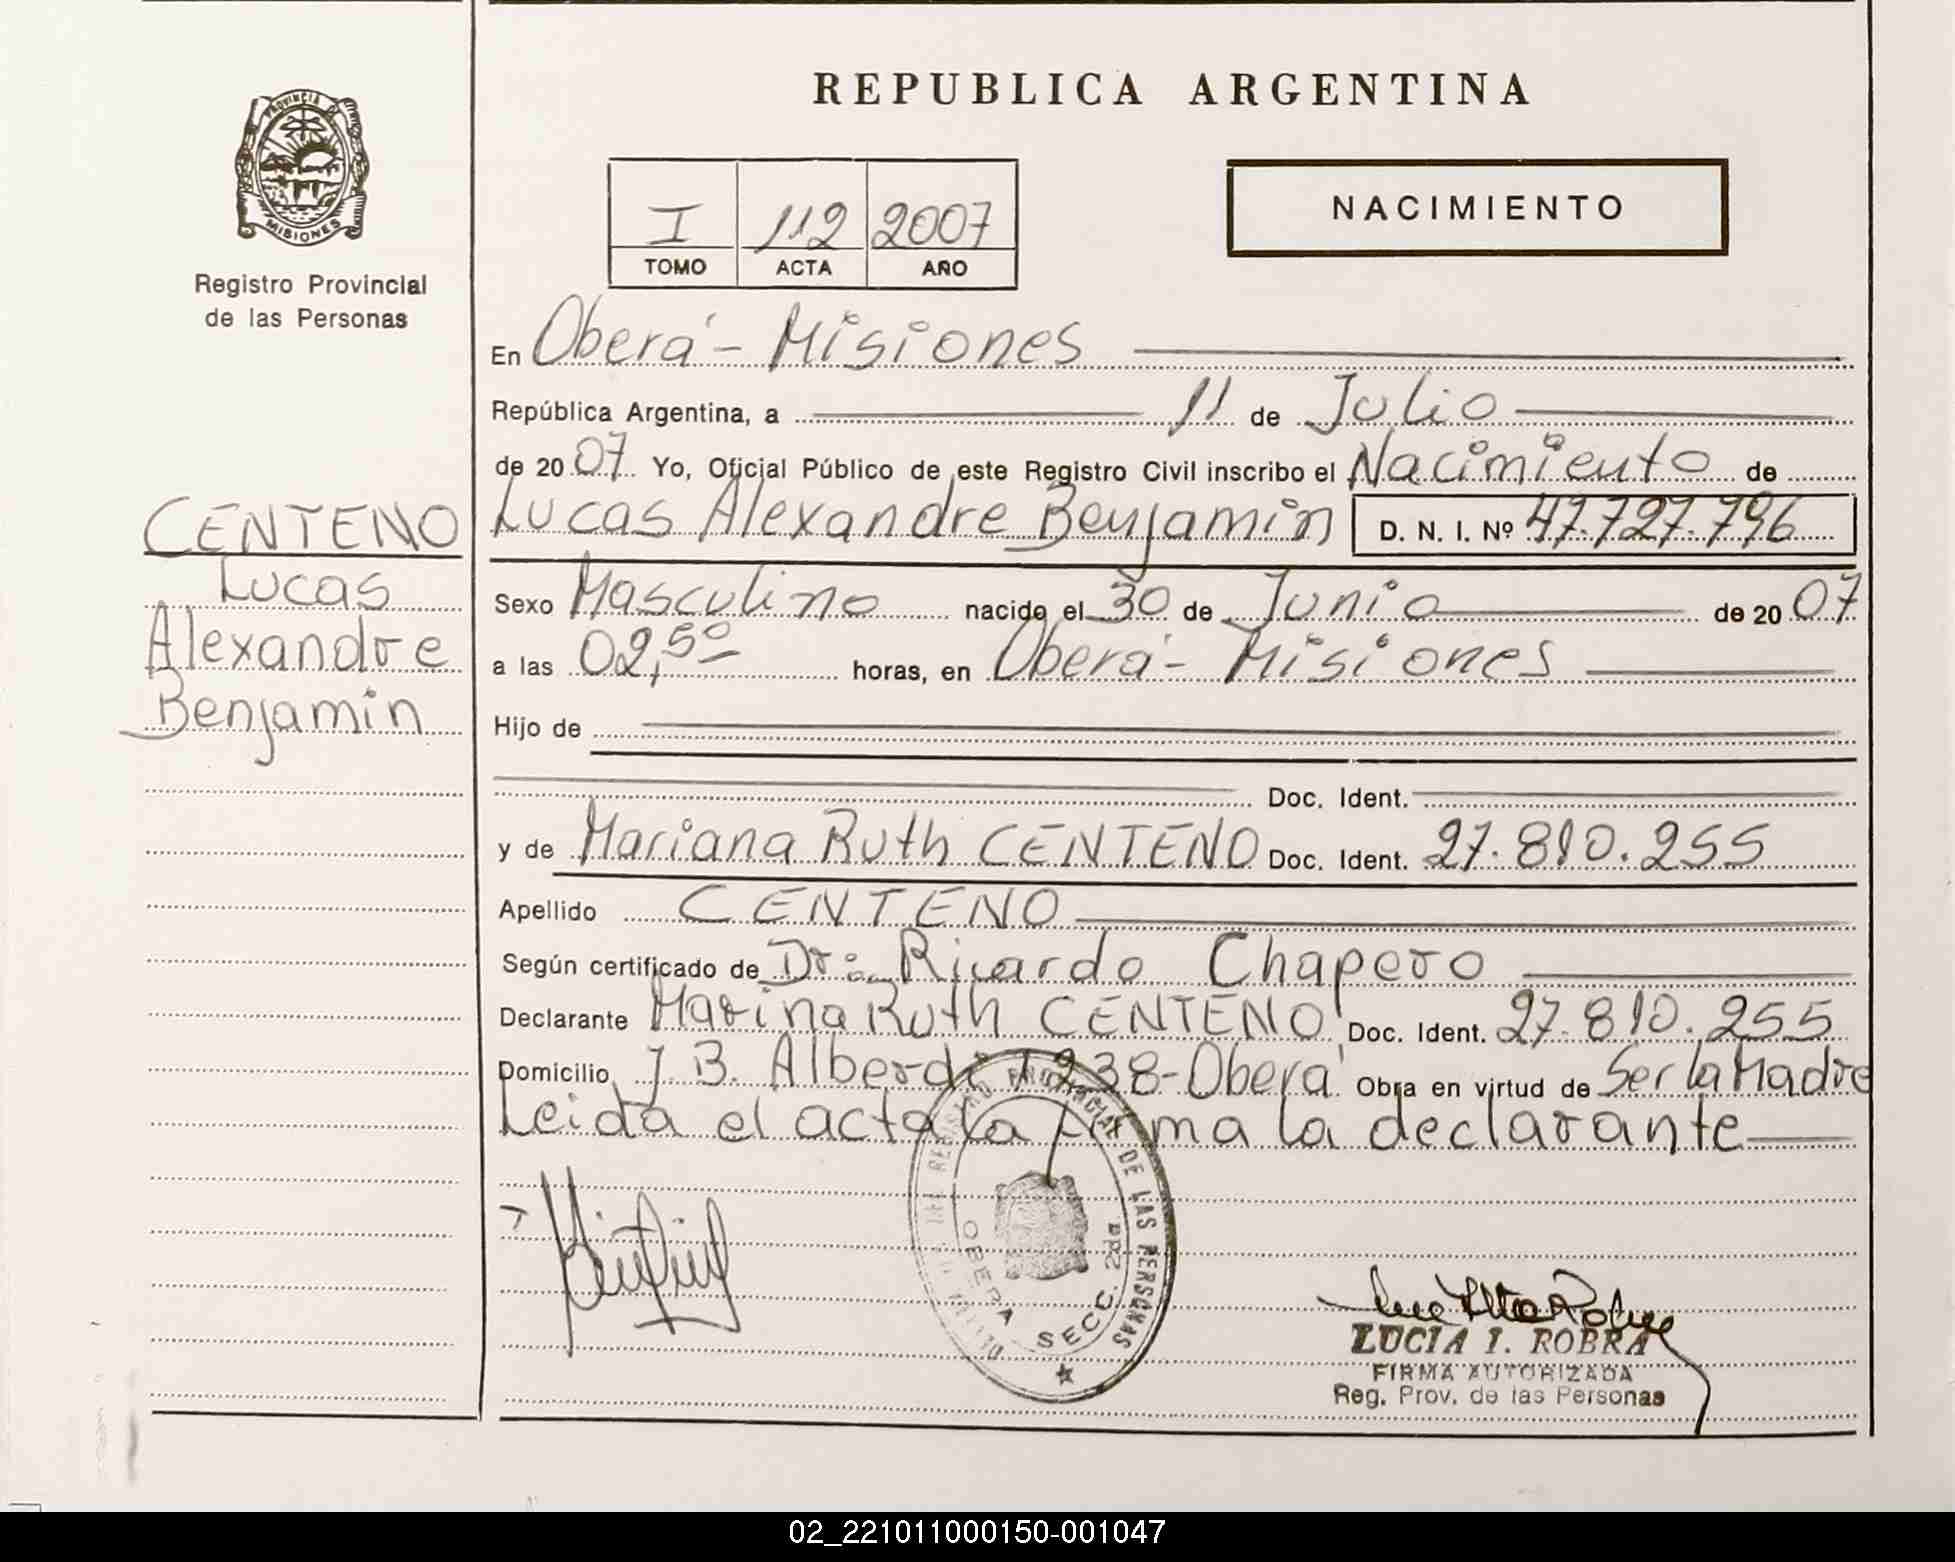 REPUBLICA ARGENTINA
PROVINCIA DE
MISIONES
Registro Provincial
de las Personas
I 112 2007
TOMO ACTA AÑO
NACIMIENTO
En Oberá - Misiones
República Argentina, a 11 de Julio
de 2007 Yo, Oficial Público de este Registro Civil inscribo el Nacimiento de
Lucas Alexandre Benjamin D. N. I. Nº 47.727.796
CENTENO
Lucas
Alexandre
Benjamin
Sexo Masculino nacido el 30 de Junio de 2007
a las 02,50 horas, en Oberá - Misiones
Hijo de
Doc. Ident.
y de Mariana Ruth CENTENO Doc. Ident. 27.810.255
Apellido CENTENO
Según certificado de Dr: Ricardo Chapero
Declarante Marina Ruth CENTENO Doc. Ident. 27.810.255
Domicilio J. B. Alberdi 1238-Oberá Obra en virtud de Ser la Madre
Leida el acta la firma la declarante
REGISTRO PROVINCIAL DE LAS PERSONAS
OBERA SECC. 2da
LUCIA I. ROBRA
FIRMA AUTORIZADA
Reg. Prov. de las Personas
02_221011000150-001047